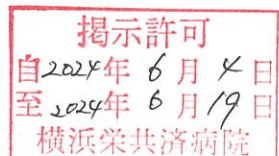 掲示許可
自2024年 6月 4日
至2024年 6月 19日
横浜栄共済病院